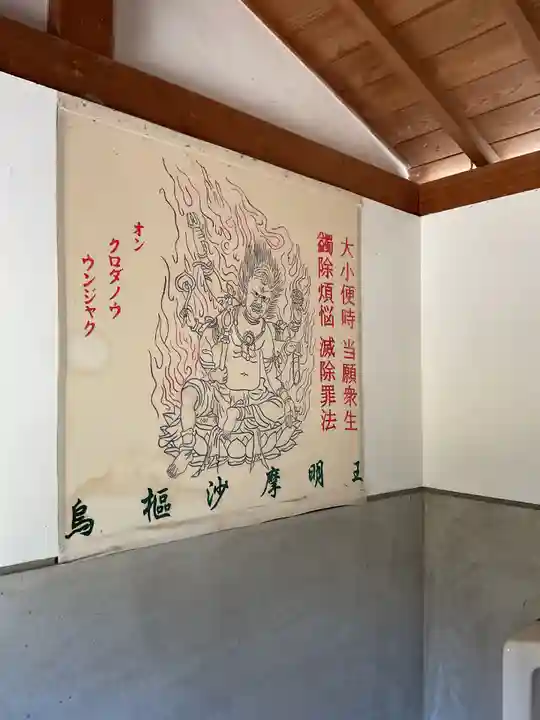 大小便時 当願衆生
蠲除煩悩 滅除罪法
オン
クロダノウ
ウンジャク
烏樞沙摩明王